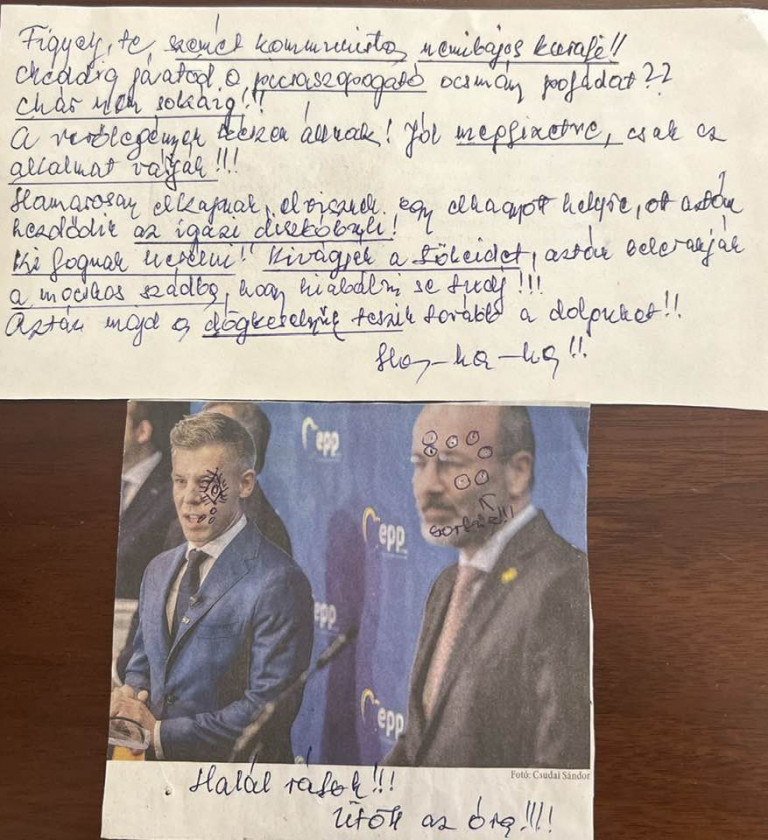 Figyelj, te szemét kommunista, nemibajos kurafi!!
Meddig járatod a picsaszopogató ocsmány pofádat??
Már nem sokáig!!
A verőlegények készen állnak! Jól megfizetve, csak az
alkalmat várják!!!
Hamarosan elkapnak, elvisznek egy elhagyott helyre, ott aztán
kezdődik az igazi!
Ki fognak herélni!! Kivágják a tökeidet, aztán belerakják
a mocskos szádba, hogy kiabálni se tudj!!!
Aztán majd a dögkeselyűk teszik tovább a dolgukat!!
Ha-ha-ha!!
epp
epp
sortűz!!!
epp
epp
Fotó: Csudai Sándor
Halál rátok!!!
Ütött az óra!!!!